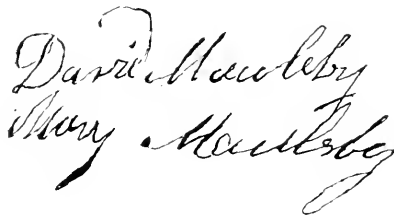 David Maulsby
Mary Maulsby